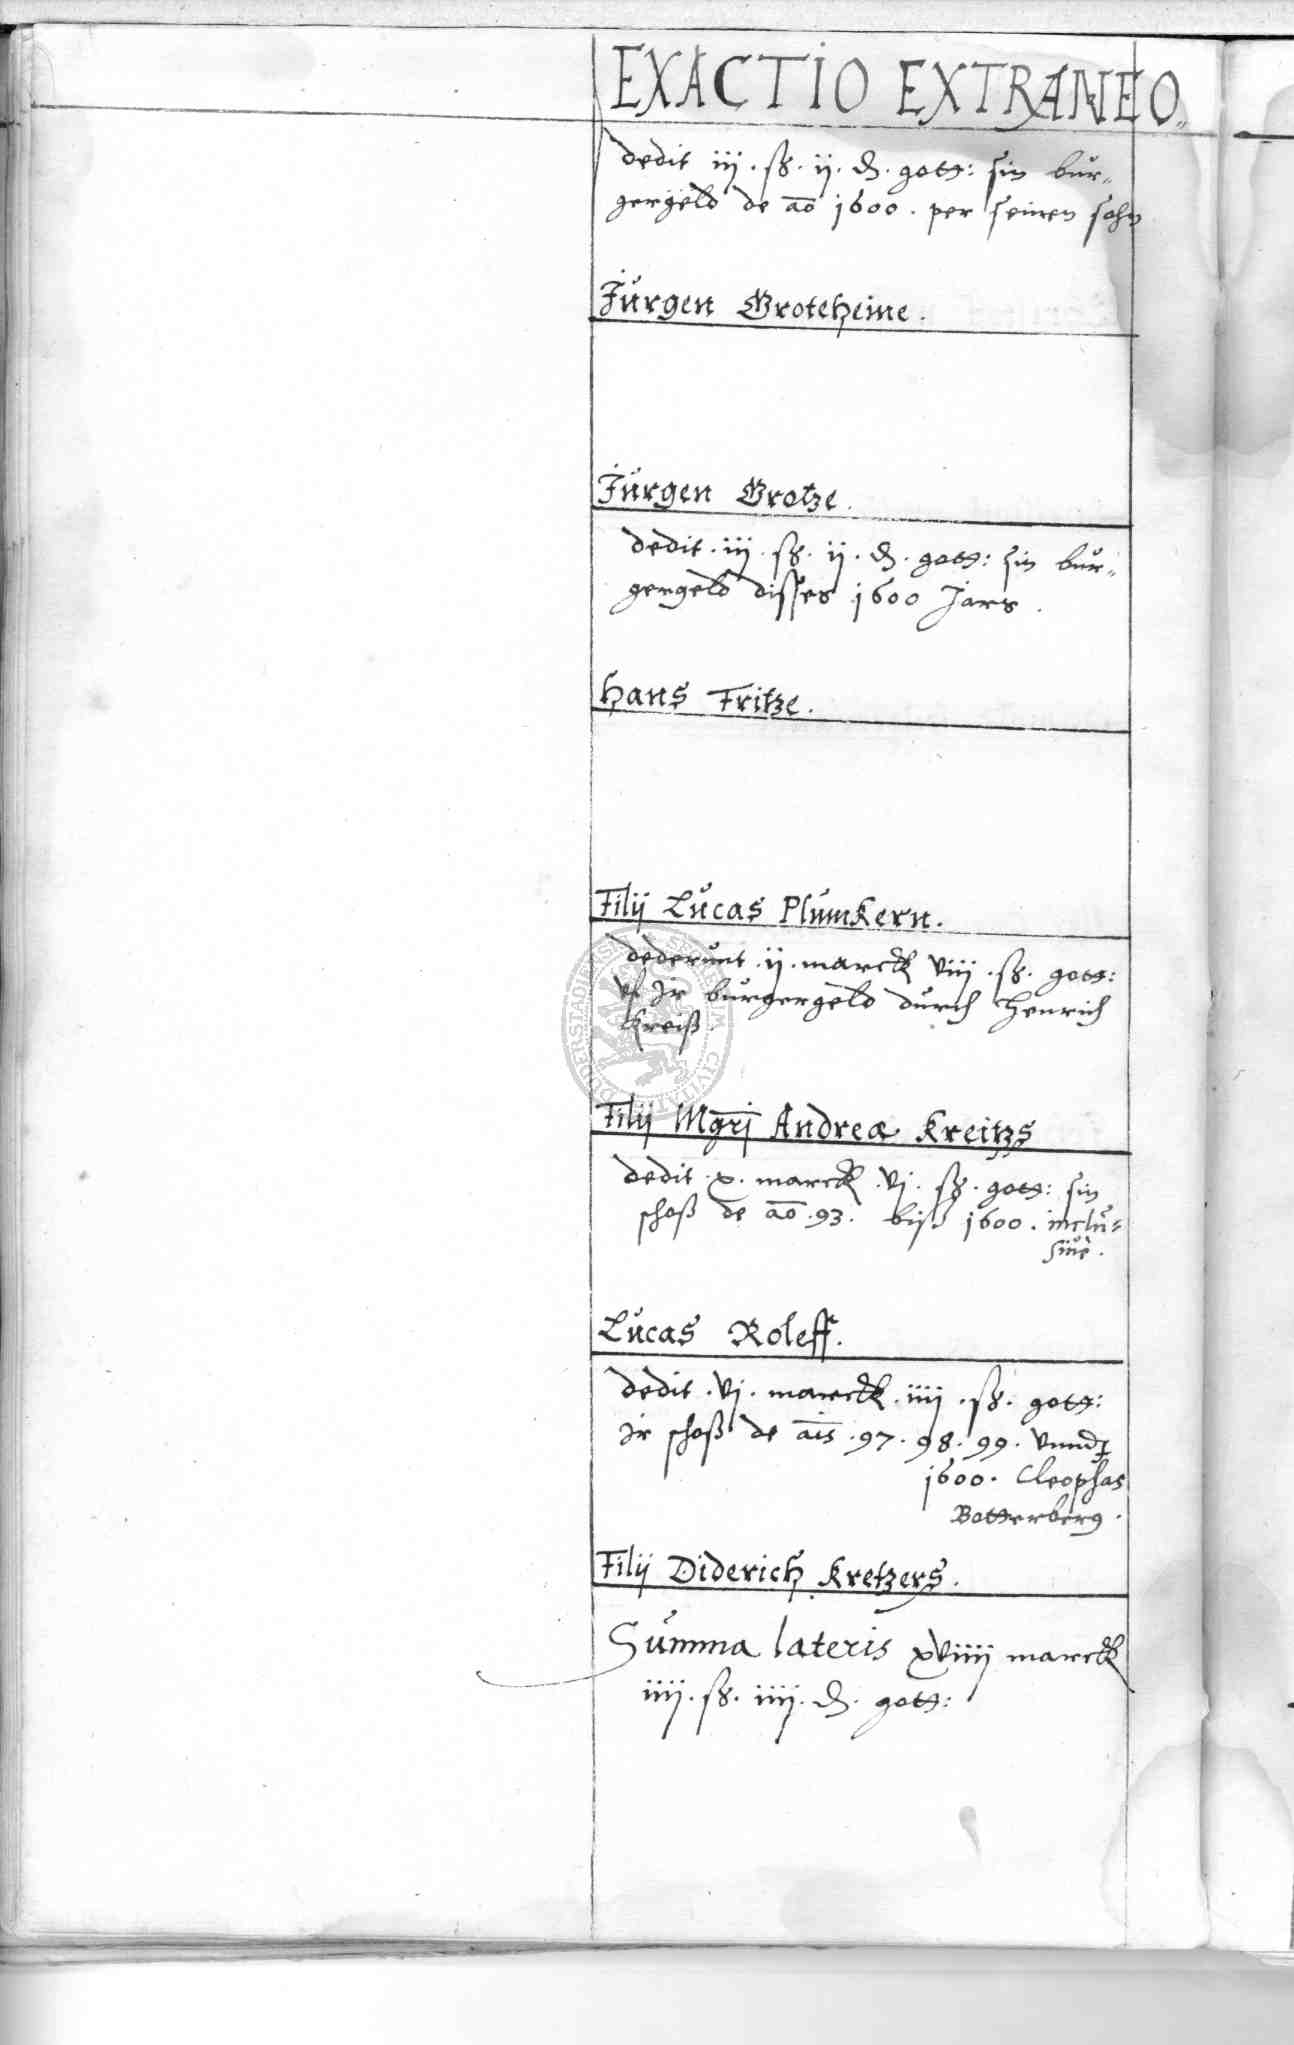 EXACTIO EXTRANEO„
dedit iij . ß . ij . ₰ . gott: sin bur„
gergeld de aō 1600 . per seinen sohn
Jürgen Groteheine .
Jürgen Grotze .
dedit . iij . ß . ij . ₰ . gott: sin bur„
gergeld disses 1600 Jars .
Hans Fritze .
Filij Lucas Plümkern .
dederunt . ij . marck viiij . ß . gott:
vf Ir burgergeld durch Henrich
Kreiß .
Filij Mgrī Andreæ Kreitzs
dedit . x . marck . vj . ß . gott: sin
schoß de aō . 93 . biß 1600 . inclu=
siuè .
Lucas Roleff .
dedit . vj . marck . iiij . ß . gott:
Ir schoß de aīs . 97 . 98 . 99 . vnndt
1600 . Cleophas
Botterberg .
Filij Diderich Kretzers .
Summa lateris xviiij marck
iiij . ß . iiij . ₰ . gott: